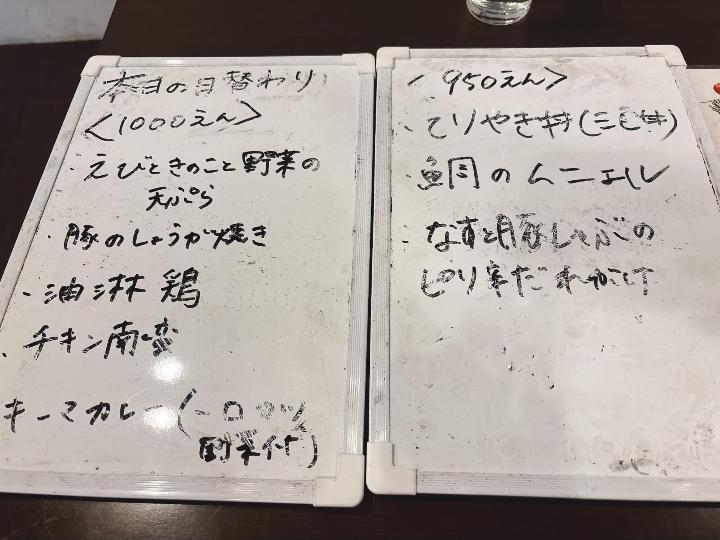 本日の日替わり
<1000えん>
・えびときのこと野菜の
天ぷら
・豚のしょうが焼き
・油淋鶏
・チキン南蛮
キーマカレー(一口カツ
付)
<950えん>
・てりやき丼(三色丼)
・鯛のムニエル
・なすと豚しゃぶの
ピリ辛だれがけ